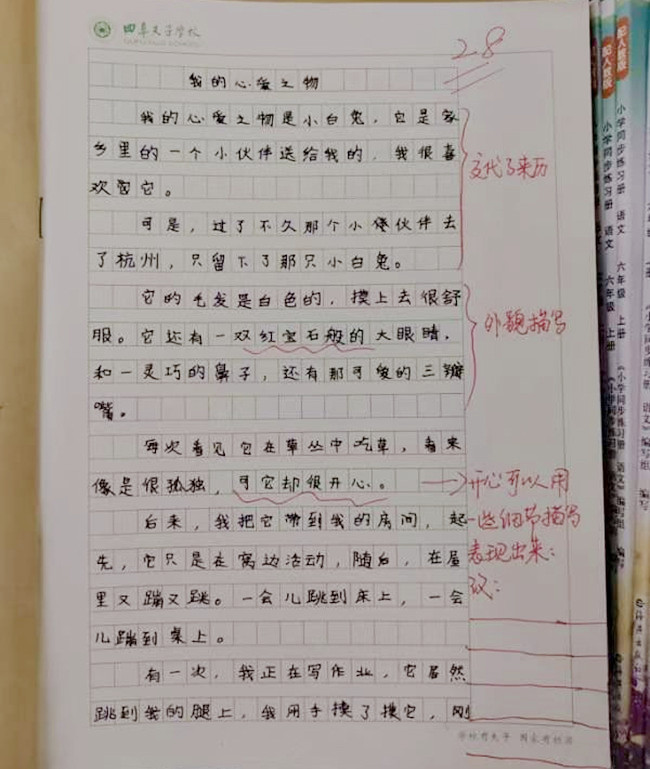 四阜夫子学校
28
我的心爱之物
我的心爱之物是小白兔，它是家
乡里的一个小伙伴送给我的，我很喜
欢它。
交代了来历
可是，过了不久那个小伙伴去
了杭州，只留下了那只小白兔。
它的毛发是白色的，摸上去很舒
服。它还有一双红宝石般的大眼睛，
和一灵巧的鼻子，还有那可爱的三瓣
嘴。
外貌描写
每次看见它在草丛中吃草，看来
像是很孤独，可它却很开心。
开心可以用
一些细节描写
表现出来：
议：
后来，我把它带到我的房间，起
先，它只是在窝边活动，随后，在屋
里又蹦又跳。一会儿跳到床上，一会
儿蹦到桌上。
有一次，我正在写作业，它居然
跳到我的腿上，我用手摸了摸它，刚
配人教版
小学同步练习册 语文 六年级 上册
《小学同步练习册 语文》编写组 编写
配人教版
小学同步练习册 语文 六年级 上册
《小学同步练习册 语文》编写组 编写